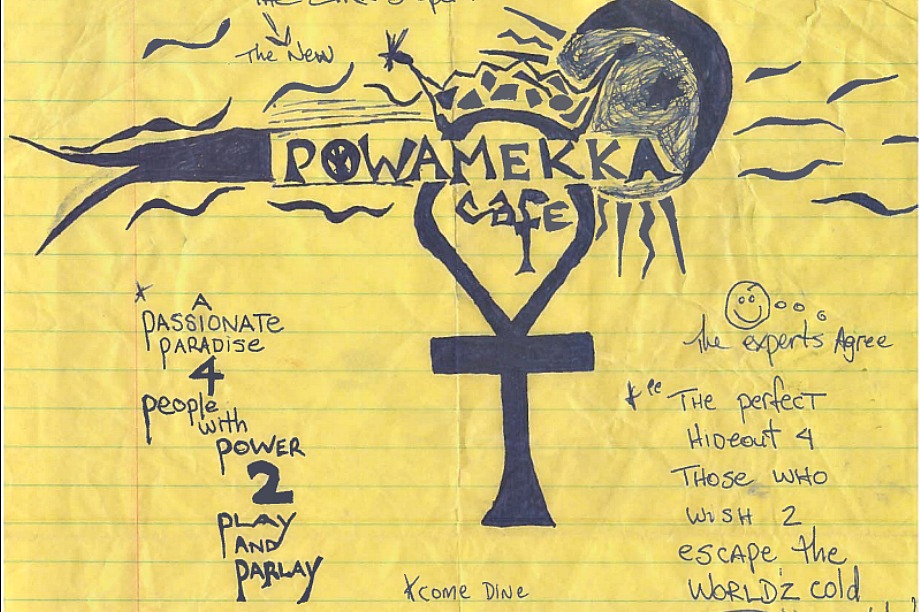 The New
POWAMEKKA
cafe
* A
PASSIONATE
PARADISE
4
people
with
POWER
2
PLAY
AND
PARLAY
*COME DINE
The experts Agree
*" THE perfect
Hideout 4
THOSE WHO
WISH 2
escape the
WORLD'Z cold